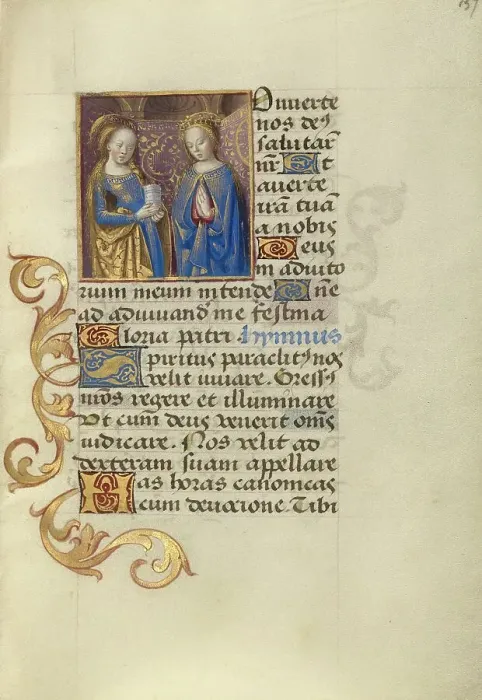 157
Onuerte
nos de⁹
salutar̄
nr̄ Et
auerte
irā tuā
a nobis
Deus
in adiuto
rium meum intende Dn̄e
ad adiuuand' me festina
Gloria patri . hymnus
Spiritus paraclit⁹ nos
velit iuuare . Gress⁹
nr̄os regere et illuminare
Vt cum deus venerit oēs
iudicare . Nos velit ad
dexteram suam appellare
Has horas canonicas
cum deuocione . Tibi